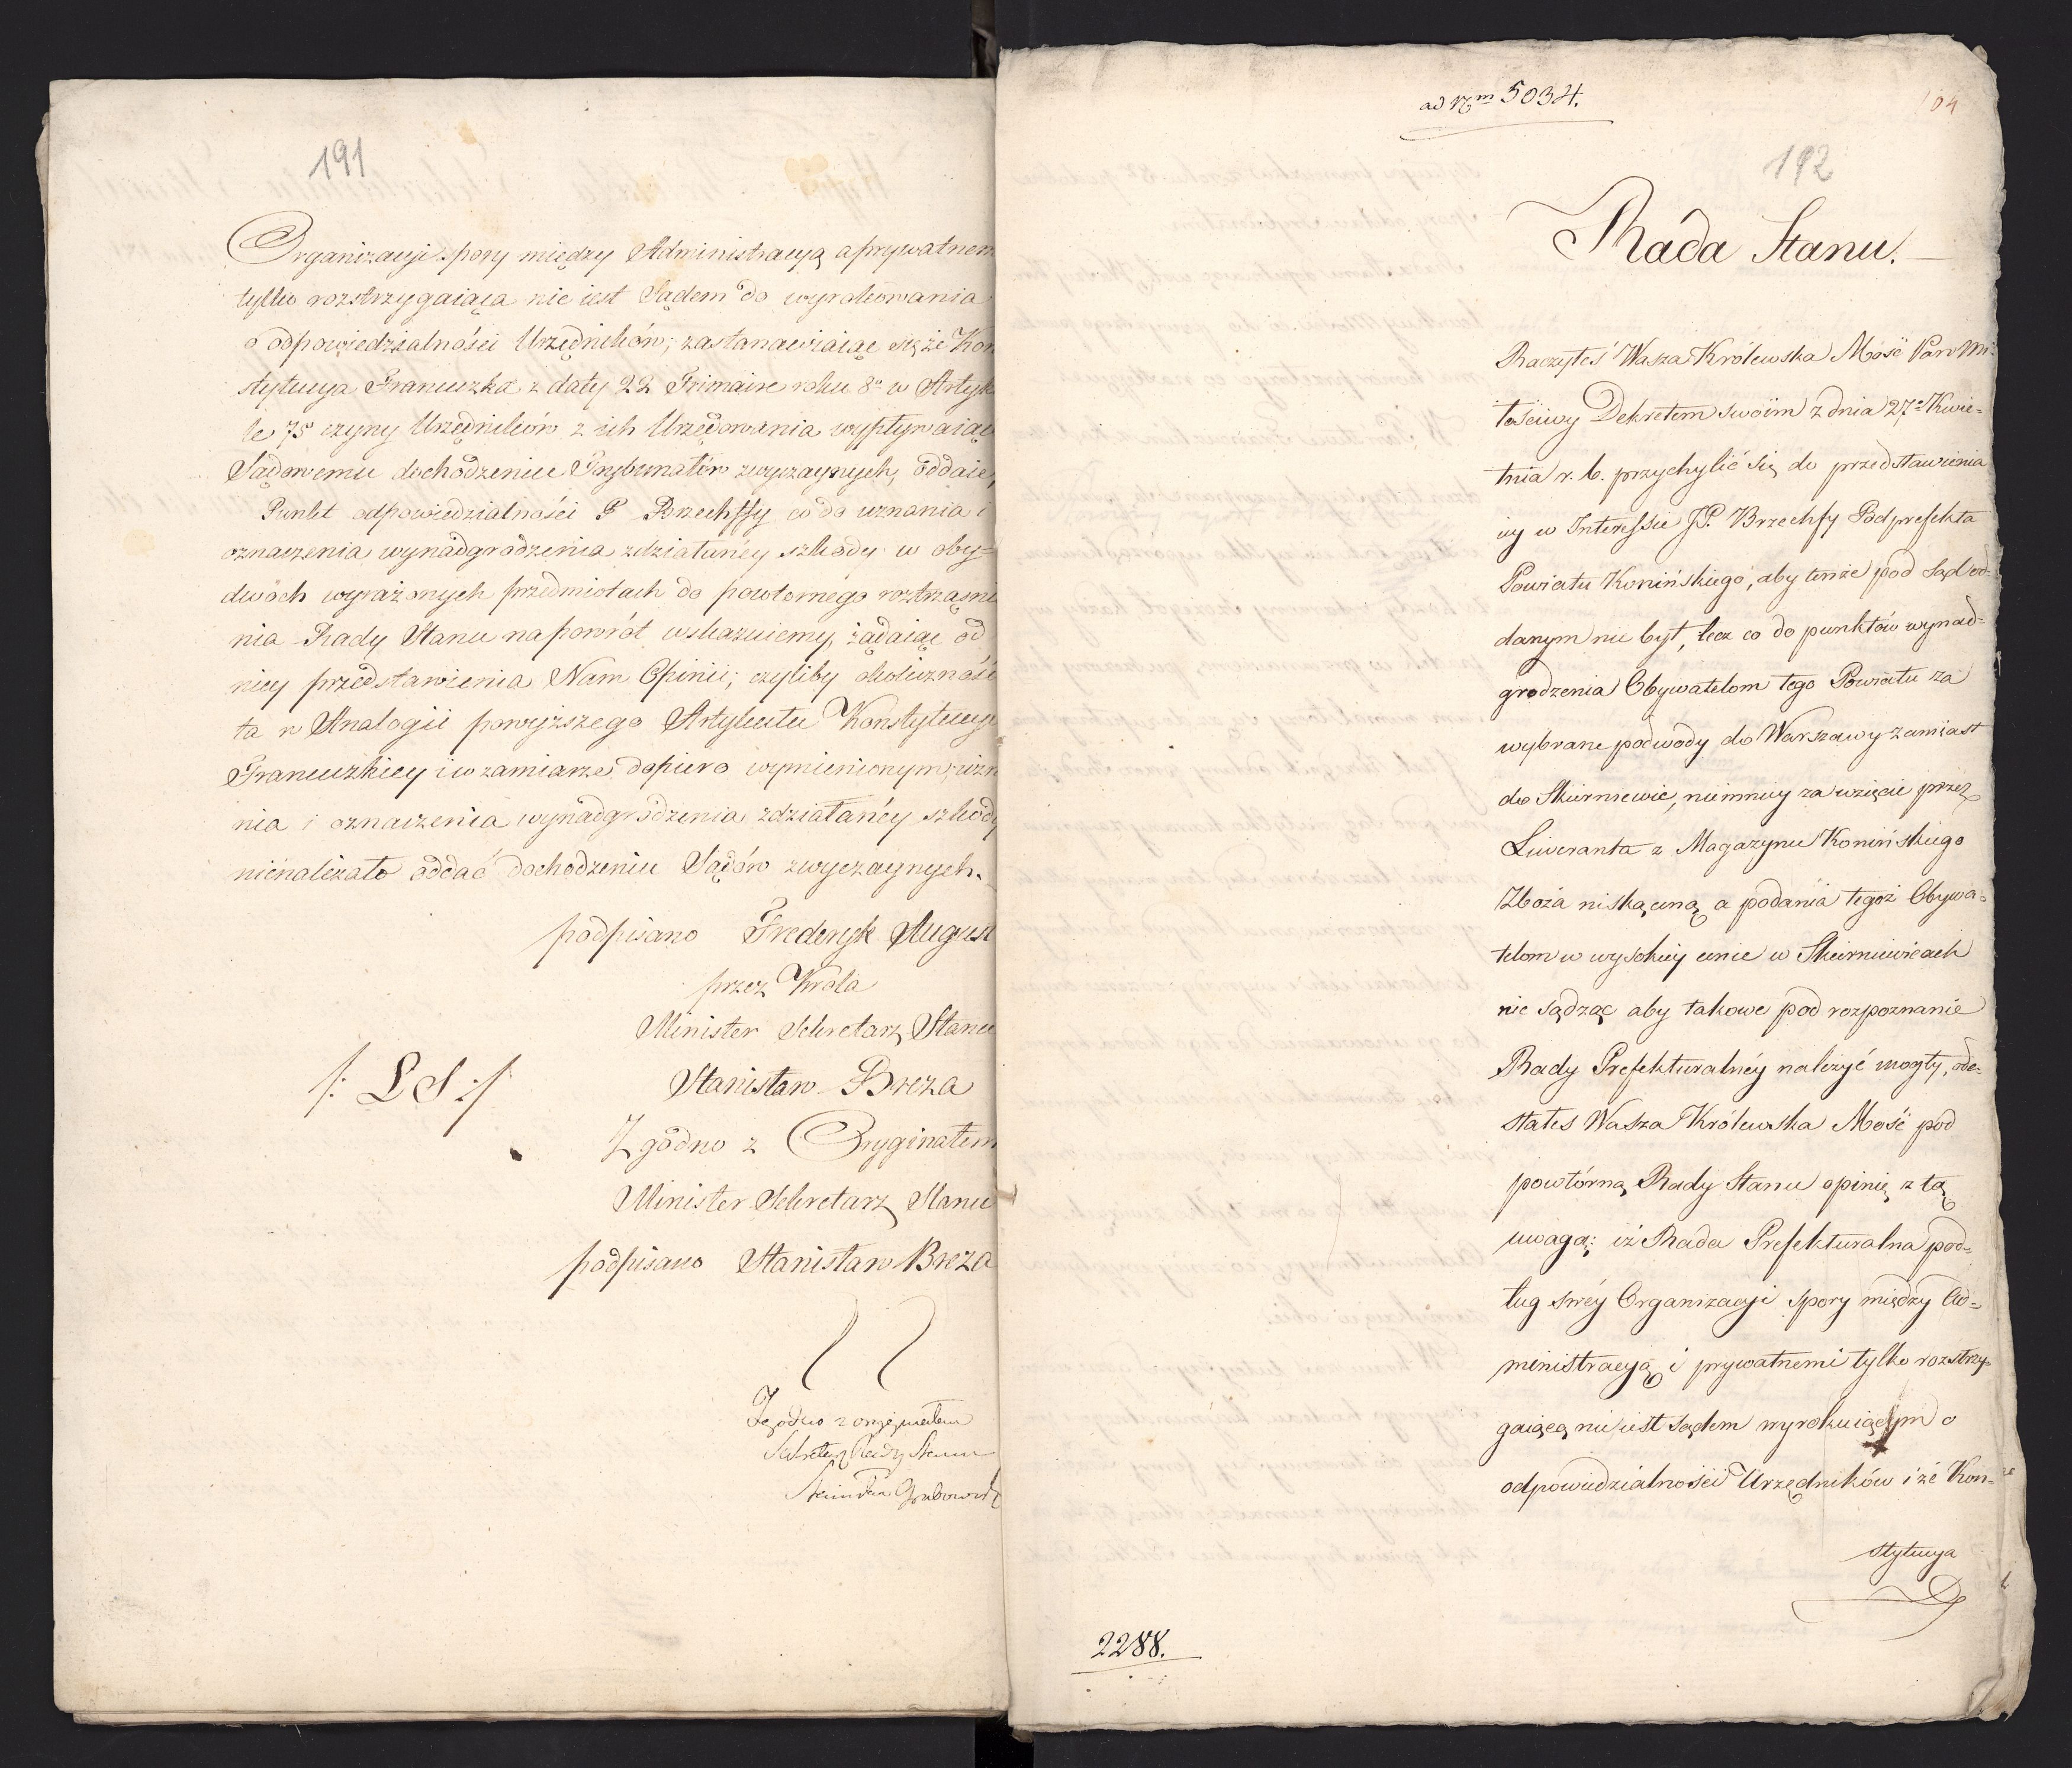 191
Organizacyi spory między Administracyą a prywatnem
tylko rozstrzygaiąca nie iest Sądem do wyrokowania
o odpowiedzialności Urzędników; zastanawiaiąc się że Kon
stytucya Francuzka z daty 22 Frimaire roku 8o w Artyk
le 75 czyny Urzędników z ich Urzędowania wypływaiąc
Sądowemu dochodzeniu Trybunałów zwyczaynych, oddaie,
Punkt odpowiedzialności P Brzechffy co do uznania i
oznaczenia wynadgrodzenia zdziałanéy szkody w oby=
dwóch wyrażonych przedmiotach do powtornego roztrząśni
nia Rady Stanu napowrót wskazuiemy, żądaiąc od
niey przedstawienia Nam Opinii; czyliby okoliczność
ta w Analogii powyższego Artykułu Konstytucyi
Francuzkiey i w zamiarze dopiero wymienionym uzn
nia i oznaczenia wynadgrodzenia zdziałanéy szkody
nienależało oddać dochodzeniu Sądów zwyczaynych.
podpisano Fryderyk August
przez Króla
Minister Sekretarz Stanu
/: L S :/ Stanisław Breza
Zgodno z Oryginałem
Minister Sekretarz Stanu
podpisano Stanisław Breza
Zgodno z oryginałem
Sekretarz Rady Stanu
Stanisław Grabowski
ad Nrm 5034.
104
192
Rada Stanu.
Raczyłeś Wasza Królewska Mość Pan Mi=
łościwy Dekretem swoim z dnia 27o Kwie=
tnia r. b. przychylić się do przedstawienia
iey w Interessie JP. Brzechfy Podprefekta
Powiatu Konińskiego, aby tenże pod Sąd od=
danym nie był, lecz co do punktów wynad=
grodzenia Obywatelom tego Powiatu za
wybrane podwody do Warszawy zamiast
do Skierniewic, niemniey za wzięcie przez
Liweranta z Magazynu Konińskiego
Zboża niską ceną a podania tegoż Obywa=
telom w wysokiey cenie w Skierniewicach
nie sądząc aby takowe pod rozpoznanie
Rady Prefekturalnéy należyć mogły, ode=
słałeś Wasza Królewska Mość pod
powtórną Rady Stanu opinię z tą
uwagą: iż Rada Prefekturalna pod=
ług swéy Organizacyi spory między Ad=
ministracyą i prywatnemi tylko rozstrzy=
gaiącą nie iest sądem wyrokuiącym o
odpowiedzialności Urzędników i że Kon=
stytucya
2288.